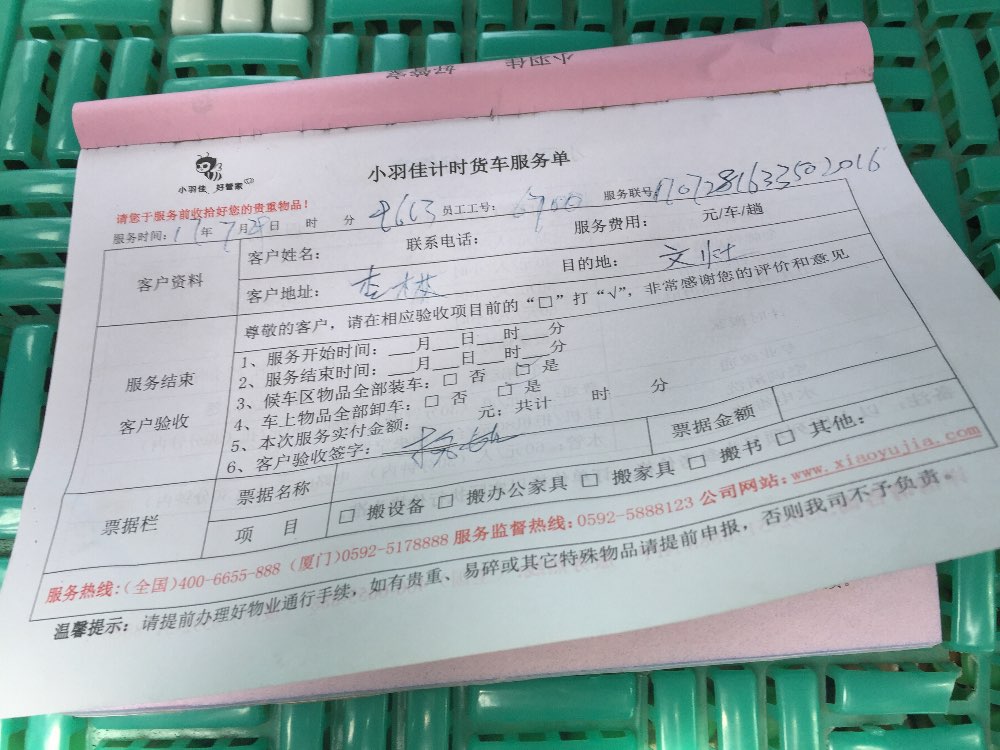 小羽佳 好管家
小羽佳 好管家
小羽佳计时货车服务单
请您于服务前收拾好您的贵重物品！
服务时间：17年7月29日 时 分 员工工号： 服务联号：170728163350 2016
客户资料
客户姓名： 联系电话： 服务费用： 元/车/趟
客户地址： 目的地：
服务结束
客户验收
尊敬的客户，请在相应验收项目前的“□”打“√”，非常感谢您的评价和意见
1、服务开始时间：___月___日___时___分
2、服务结束时间：___月___日___时___分
3、候车区物品全部装车：□ 否 □ 是
4、车上物品全部卸车：□ 否 □ 是
5、本次服务实付金额： 元；共计 时 分
6、客户验收签字：
票据栏
票据名称 票据金额
项 目 □ 搬设备 □ 搬办公家具 □ 搬家具 □ 搬书 □ 其他：
服务热线：（全国）400-6655-888（厦门）0592-5178888 服务监督热线：0592-5888123 公司网站：www.xiaoyujia.com
温馨提示：请提前办理好物业通行手续，如有贵重、易碎或其它特殊物品请提前申报，否则我司不予负责。